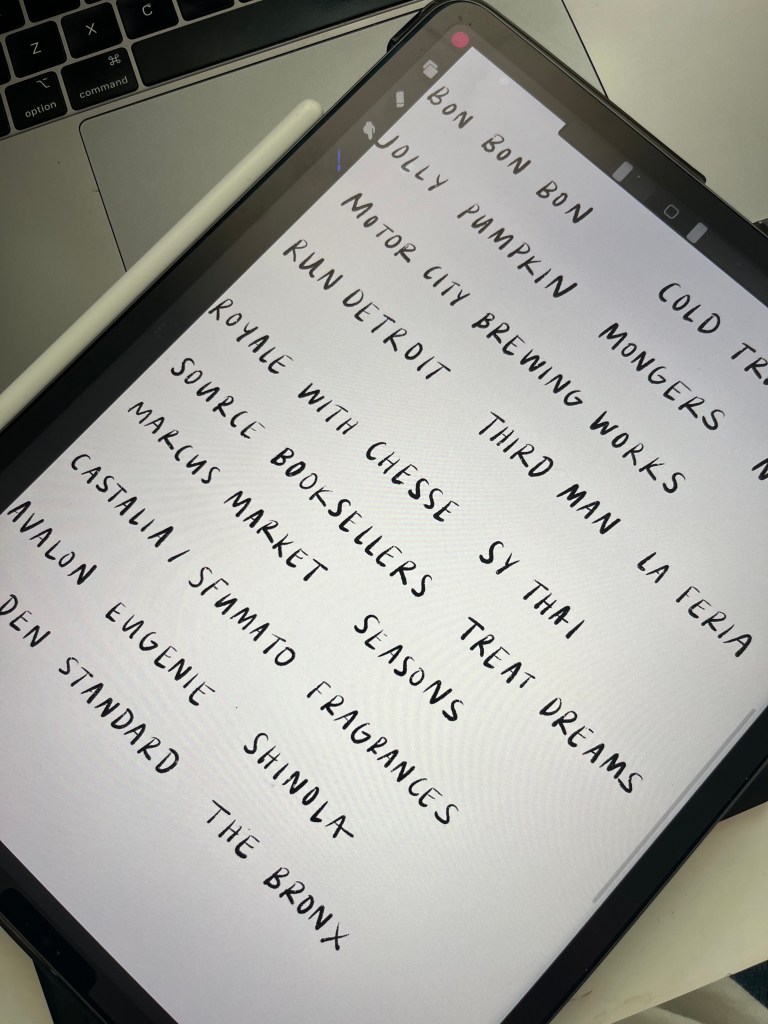 Z X C
⌥ ⌘
option command
BON BON BON COLD
JOLLY PUMPKIN MONGERS
MOTOR CITY BREWING WORKS
RUN DETROIT THIRD MAN LA FERIA
ROYALE WITH CHESSE SY THAI
SOURCE BOOKSELLERS TREAT DREAMS
MARCUS MARKET SEASONS
CASTALIA / SFUMATO FRAGRANCES
AVALON EUGENIE SHINOLA
DEN STANDARD THE BRONX